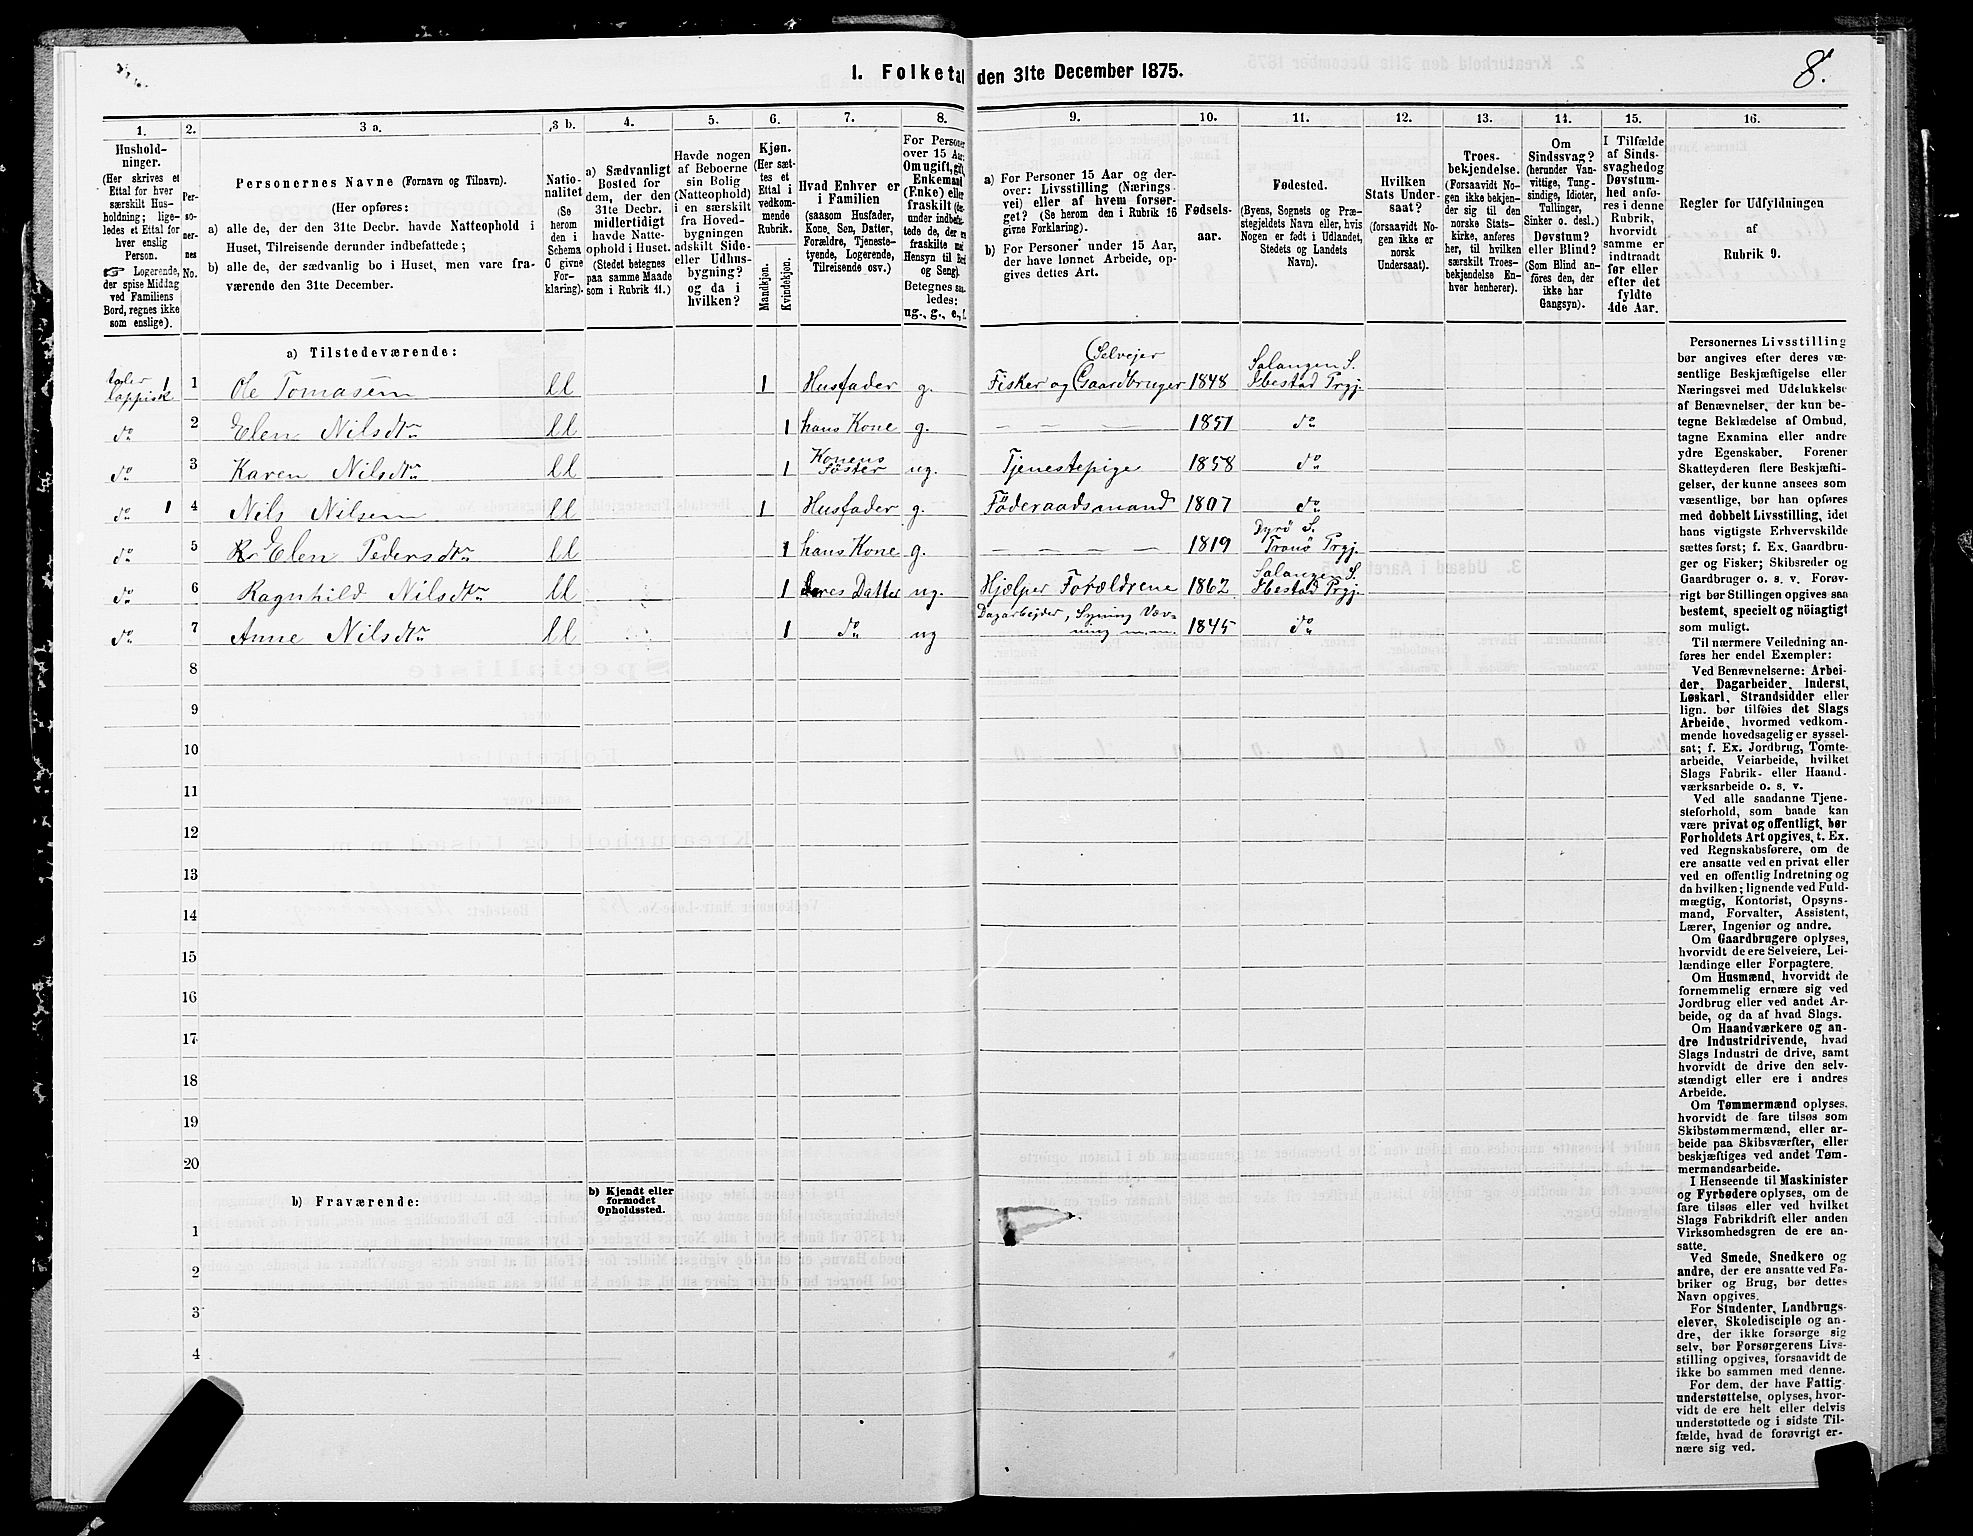 8.
I. Folketal den 31te December 1875.
1. 2. 3 a. 3 b. 4. 5. 6. 7. 8. 9. 10. 11. 12. 13. 14. 15. 16.
Hushold-
ninger.
(Her skrives et
Ettal for hver
særskilt Hus-
holdning; lige-
ledes et Ettal for
hver enslig
Person.
☞ Logerende,
der spise Middag
ved Familiens
Bord, regnes ikke
som enslige).
Per-
so-
ner-
nes
No.
Personernes Navne (Fornavn og Tilnavn).
(Her opføres:
a) alle de, der den 31te Decbr. havde Natteophold i
Huset, Tilreisende derunder indbefattede;
b) alle de, der sædvanlig bo i Huset, men vare fra-
værende den 31te December.
Natio-
nalitet
(Se
herom
den i
Schema
C givne
For-
klaring).
a) Sædvanligt
Bosted for
dem, der den
31te Decbr.
midlertidigt
havde Natte-
ophold i Huset.
(Stedet betegnes
paa samme Maade
som i Rubrik 11.)
Havde nogen
af Beboerne
sin Bolig
(Natteophold)
i en særskilt
fra Hoved-
bygningen
adskilt Side-
eller Udhus-
bygning?
og da i
hvilken?
Kjøn.
(Her sæt-
tes et
Ettal i
vedkom-
mende
Rubrik.
Mandkjøn.
Kvindekjøn.
Hvad Enhver er
i Familien
(saasom Husfader,
Kone, Søn, Datter,
Forældre, Tjeneste-
tyende, Logerende,
Tilreisende osv.)
For Personer
over 15 Aar:
Om ugift, gift,
Enkemand
(Enke) eller
fraskilt
Hensyn til Bord
og Seng).
ledes:
ug., g., e., f.
a) For Personer 15 Aar og der-
over: Livsstilling (Nærings-
vei) eller af hvem forsør-
get? (Se herom den i Rubrik 16
givne Forklaring).
b) For Personer under 15 Aar,
der have lønnet Arbeide, op-
gives dettes Art.
Fødsels-
aar.
Fødested.
(Byens, Sognets og Præ-
stegjeldets Navn eller, hvis
Nogen er født i Udlandet,
Stedets og Landets
Navn).
Hvilken
Stats Under-
saat?
(forsaavidt No-
gen ikke er
norsk
Undersaat).
Troes-
bekjendelse.
(Forsaavidt No-
gen ikke bekjen-
der sig til den
norske Stats-
kirke, anføres
her, til hvilken
særskilt Troes-
bekjendelse En-
hver henhører).
Om
Sindssvag?
(herunder Van-
vittige, Tung-
sindige, Idioter,
Tullinger,
Sinker o. desl.)
Døvstum?
eller Blind?
(Som Blind an-
føres den, der
ikke har
Gangsyn).
I Tilfælde
af Sinds-
svaghed og
Døvstum-
hed anfø-
res i denne
Rubrik,
hvorvidt
samme er
indtraadt
før eller
efter det
fyldte
4de Aar.
Regler for Udfyldningen
af
Rubrik 9.
a) Tilstedeværende:
taler lappisk 1 1 Ole Tomasen ll 1 Husfader g. Fisker og Gaardbruger (Selvejer 1848 Salangen S. Ibestad Prgj.
do 2 Elen Nilsdtr ll 1 hans Kone g. — — — — 1851 do
do 3 Karen Nilsdtr ll 1 Konens Söster ug. Tjenestepige 1858 do
do 1 4 Nils Nilsen ll 1 Husfader g. Föderaadsmand 1807 do
do 5 Elen Pedersdtr ll 1 hans Kone g. — — — — 1819 Dyrö S. Tranö Prgj.
do 6 Ragnhild Nilsdtr ll 1 Deres Datter ug. Hjælper Forældrene 1862 Salangen S. Ibestad Prgj.
do 7 Anne Nilsdtr ll 1 do ug Dagarbejder, Syning Væv-
ning m.m. 1845 do
8
9
10
11
12
13
14
15
16
17
18
19
20
b) Fraværende:
b) Kjendt eller
formodet
Opholdssted.
1
2
3
4
Personernes Livsstilling
bør angives efter deres væ-
sentlige Beskjæftigelse eller
Næringsvei med Udelukkelse
af Benævnelser, der kun be-
tegne Beklædelse af Ombud,
tagne Examina eller andre
ydre Egenskaber. Forener
Skatteyderen flere Beskjæfti-
gelser, der kunne ansees som
væsentlige, bør han opføres
med dobbelt Livsstilling, idet
hans vigtigste Erhvervskilde
sættes først; f. Ex. Gaardbru-
ger og Fisker; Skibsreder og
Gaardbruger o. s. v. Forøv-
rigt bør Stillingen opgives saa
bestemt, specielt og nöiagtigt
som muligt.
Til nærmere Veiledning an-
føres her endel Exempler:
Ved Benævnelserne: Arbei-
der, Dagarbeider, Inderst,
Løskarl, Strandsidder eller
lign. bør tilføies det Slags
Arbeide, hvormed vedkom-
mende hovedsagelig er syssel-
sat; f. Ex. Jordbrug, Tomte-
arbeide, Veiarbeide, hvilket
Slags Fabrik- eller Haand-
værksarbeide o. s. v.
Ved alle saadanne Tjene-
steforhold, som baade kan
være privat og offentligt, bør
Forholdets Art opgives, t. Ex.
ved Regnskabsførere, om de
ere ansatte ved en privat eller
ved en offentlig Indretning og
da hvilken; lignende ved Fuld-
mægtig, Kontorist, Opsyns-
mand, Forvalter, Assistent,
Lærer, Ingeniør og andre.
Om Gaardbrugere oplyses,
hvorvidt de ere Selveiere, Lei-
lændinge eller Forpagtere.
Om Husmænd, hvorvidt de
fornemmelig ernære sig ved
Jordbrug eller ved andet Ar-
beide, og da af hvad Slags.
Om Haandværkere og an-
dre Industridrivende, hvad
Slags Industri de drive, samt
hvorvidt de drive den selv-
stændigt eller ere i andres
Arbeide.
Om Tømmermænd oplyses,
hvorvidt de fare tilsøs som
Skibstømmermænd, eller ar-
beide paa Skibsværfter, eller
beskjæftiges ved andet Tøm-
mermandsarbeide.
I Henseende til Maskinister
og Fyrbødere oplyses, om de
fare tilsøs eller ved hvilket
Slags Fabrikdrift eller anden
Virksomhedsgren de ere an-
satte.
Ved Smede, Snedkere og
andre, der ere ansatte ved Fa-
briker og Brug, bør dettes
Navn opgives.
For Studenter, Landbrugs-
elever, Skoledisciple og an-
dre, der ikke forsørge sig
selv, bør Forsørgerens Livs-
stilling opgives, forsaavidt de
ikke bo sammen med denne.
For dem, der have Fattig-
understøttelse, oplyses, hvor-
vidt de ere helt eller delvis
understøttede og i sidste Til-
fælde, hvad de forøvrigt er-
nære sig ved.